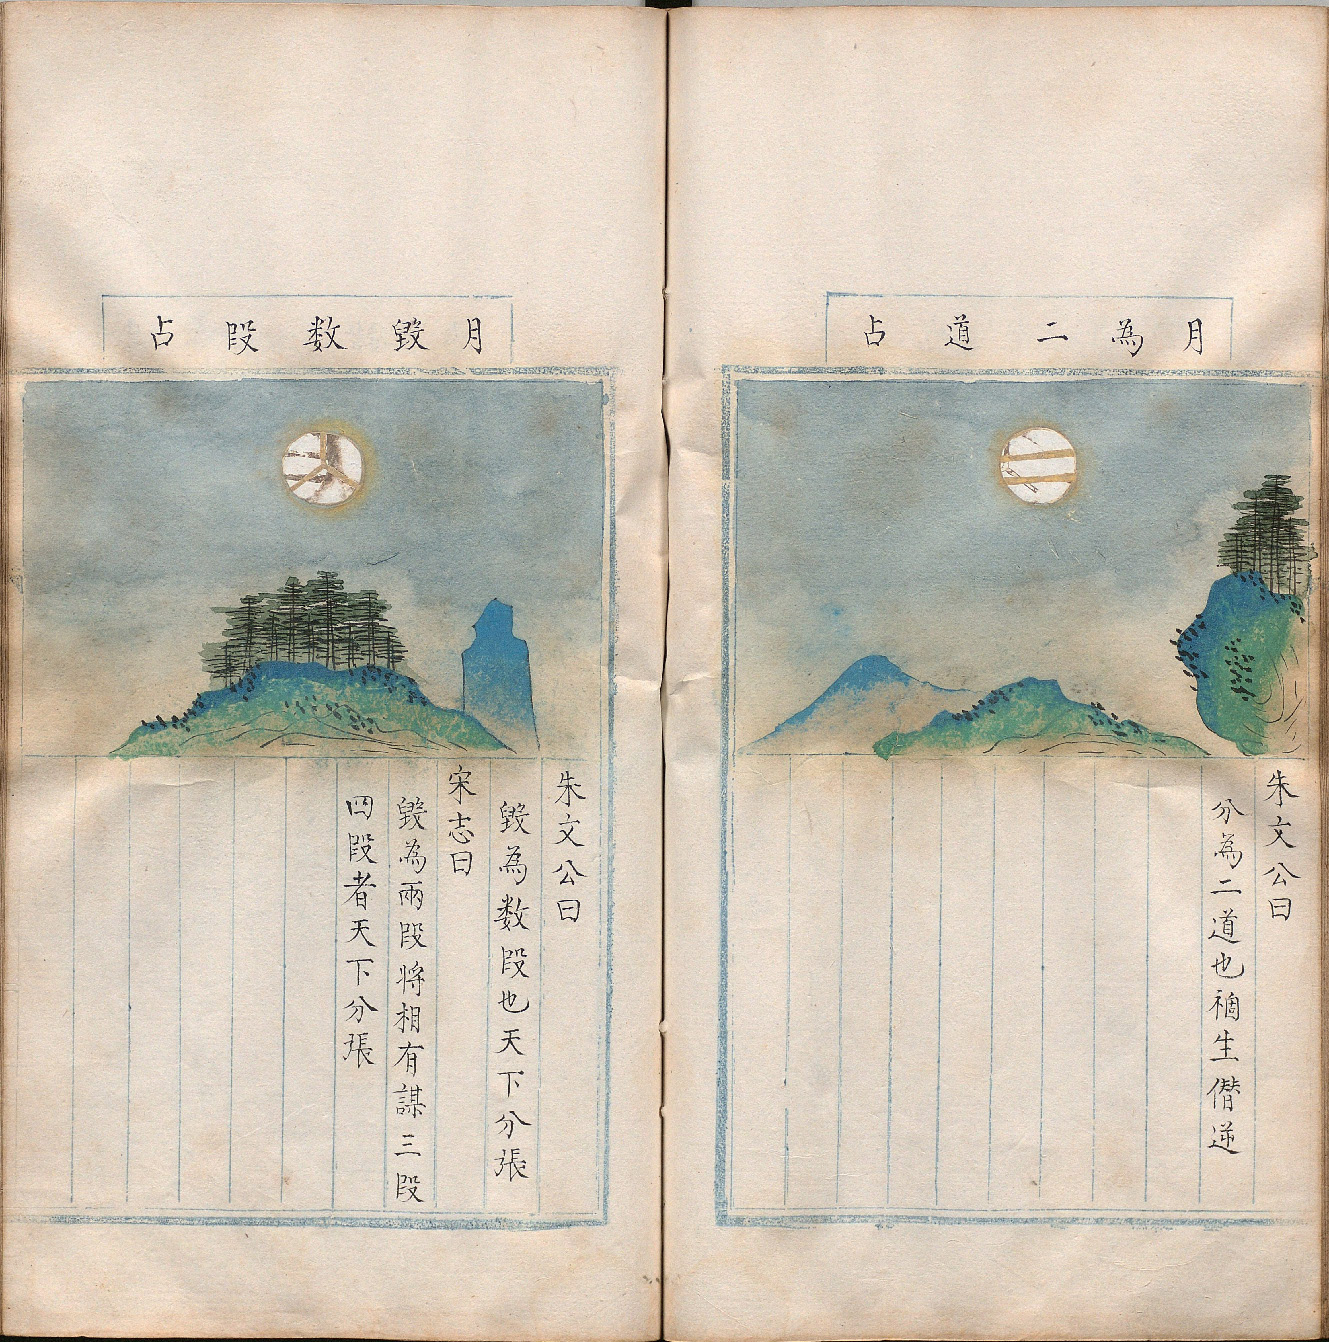 月為二道占
朱文公曰
分為二道也禍生僭逆
月毀數段占
朱文公曰
毀為數段也天下分張
宋志曰
毀為兩段將相有謀三段
四段者天下分張